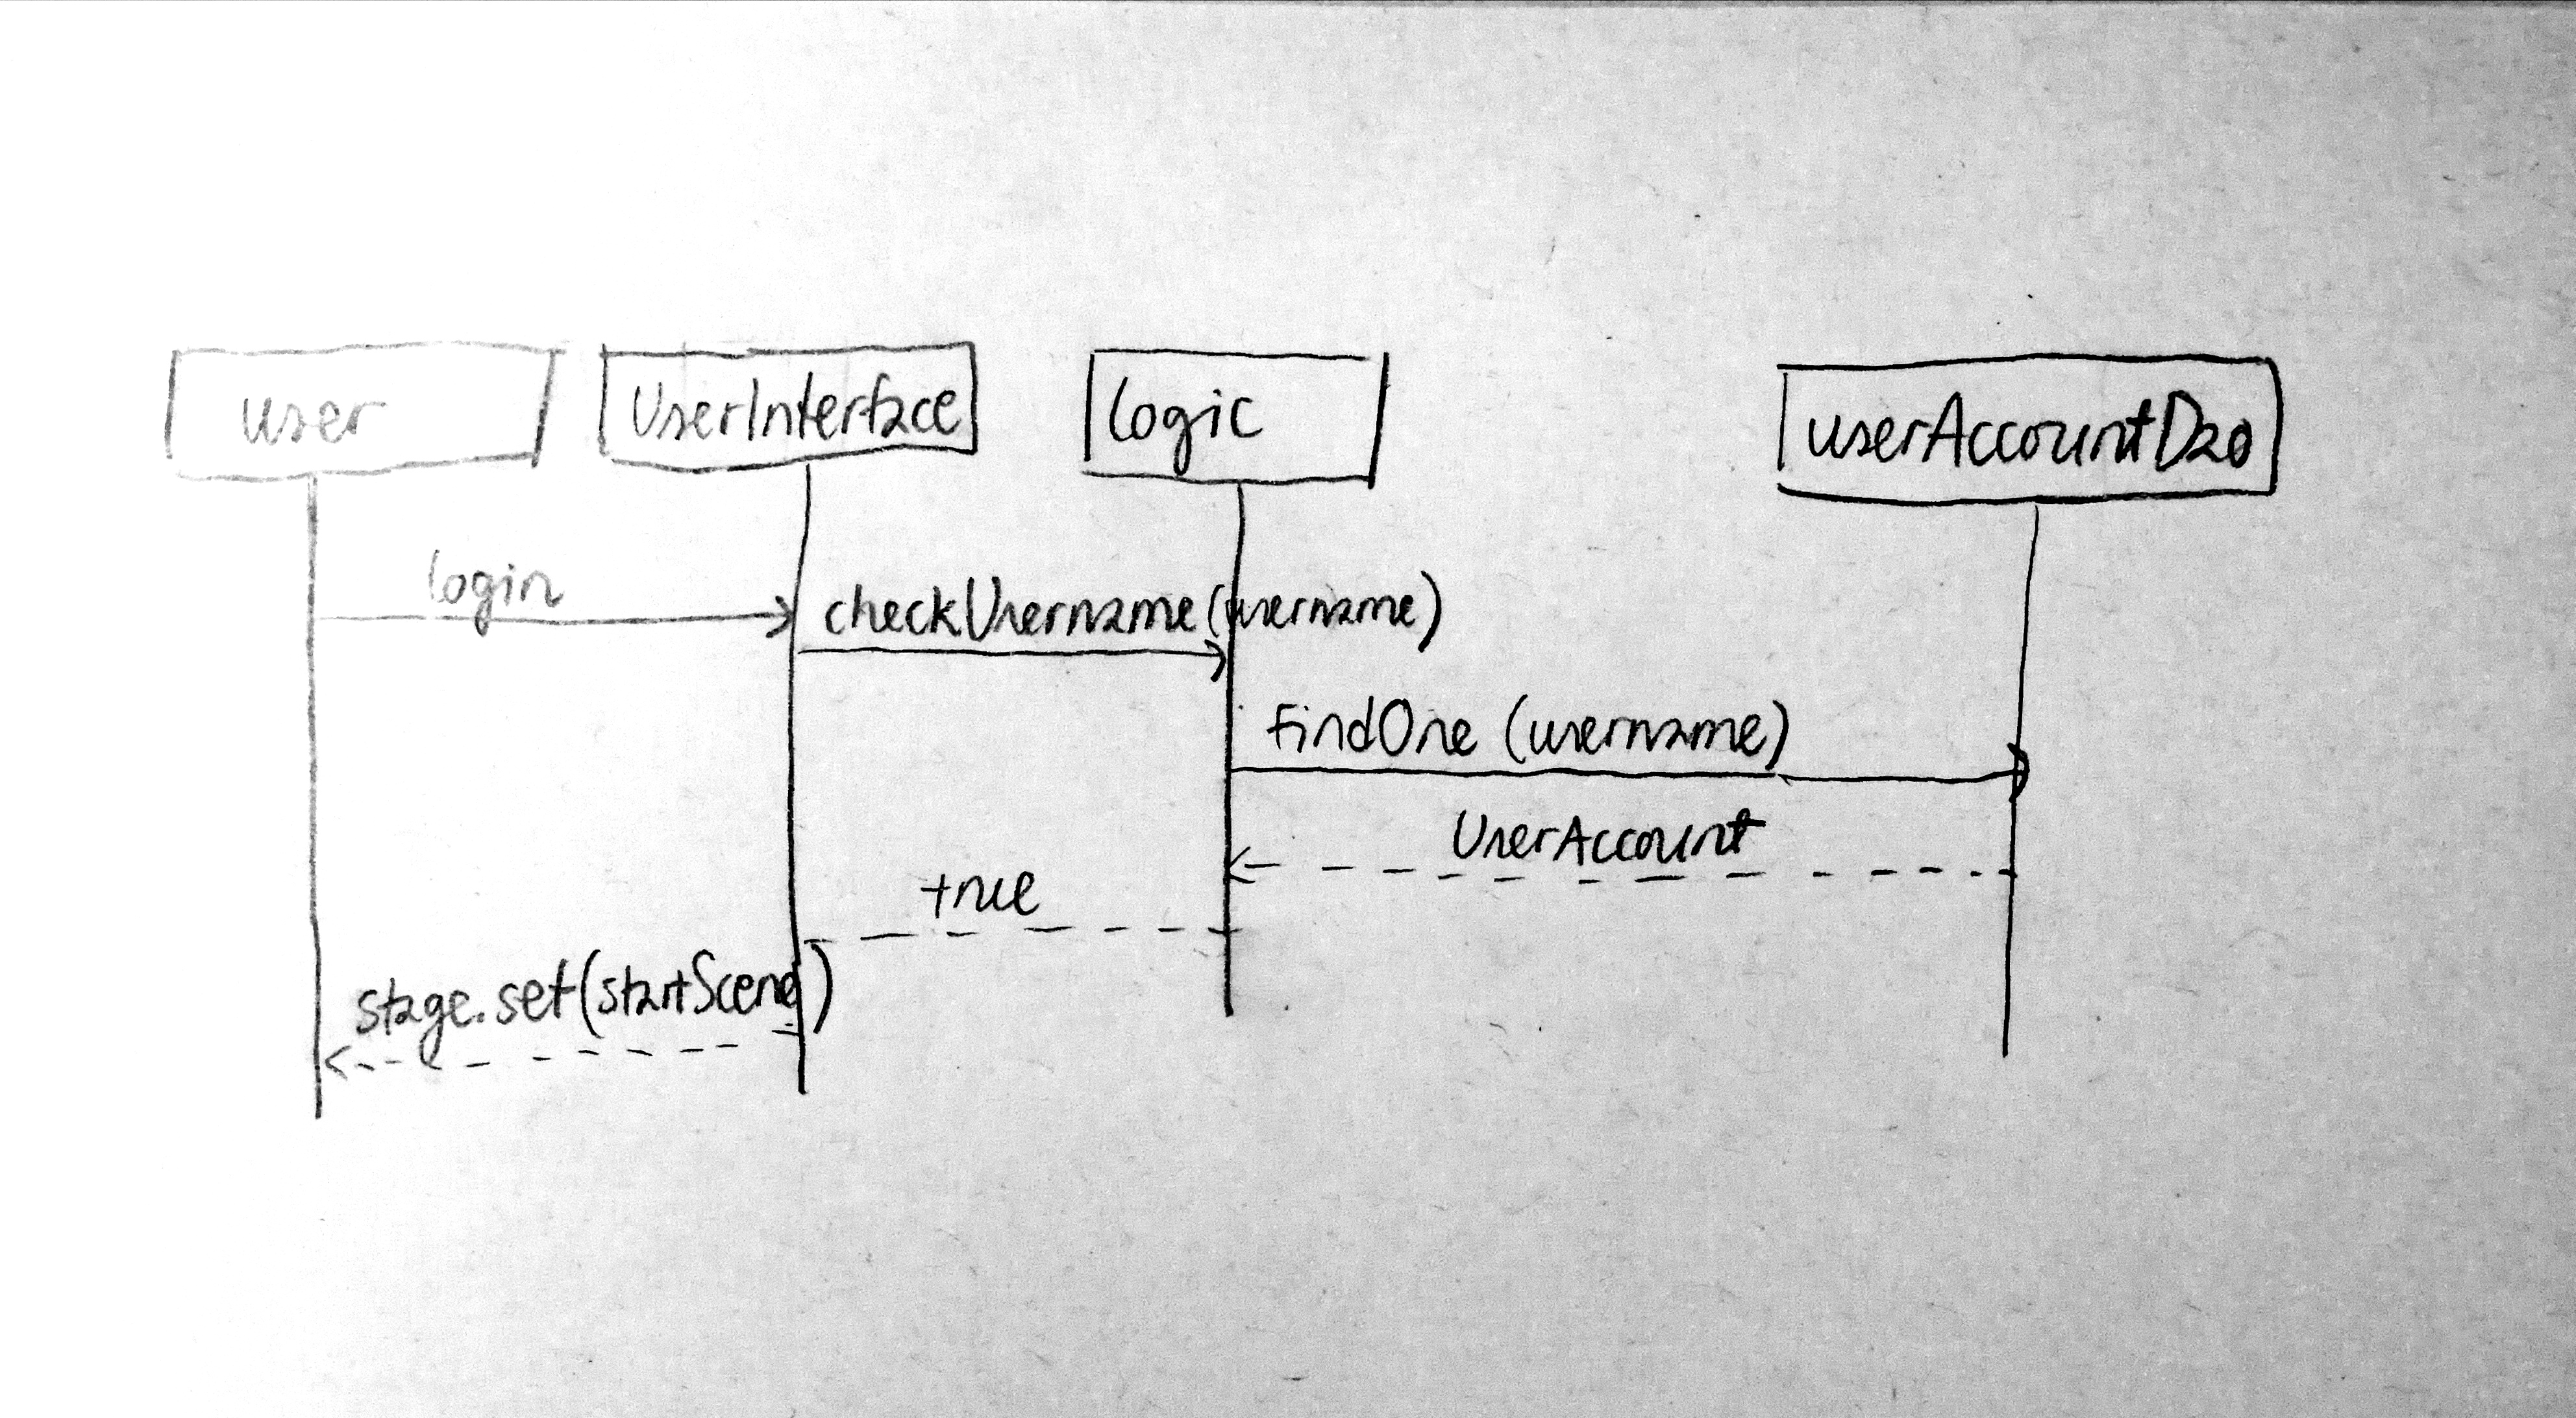 user
UserInterface
logic
userAccountDao
login
checkUsername(username)
findOne (username)
UserAccount
true
stage.set(startScene)